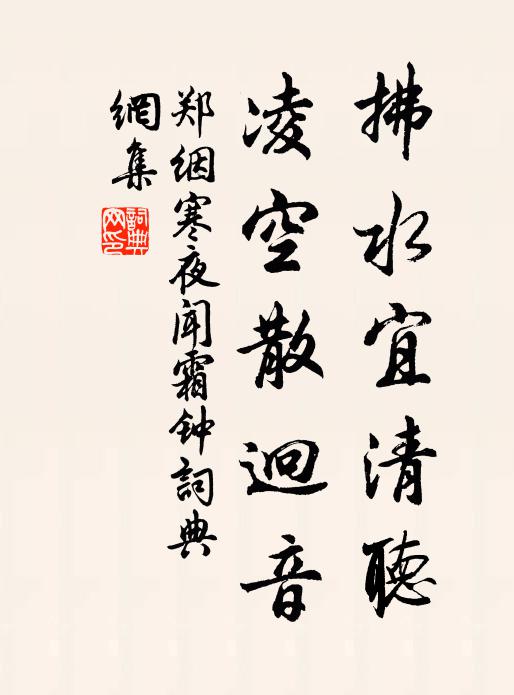 拂水宜清聽
凌空散迥音
郑絪寒夜闻霜钟詞典
網集
詞典網印